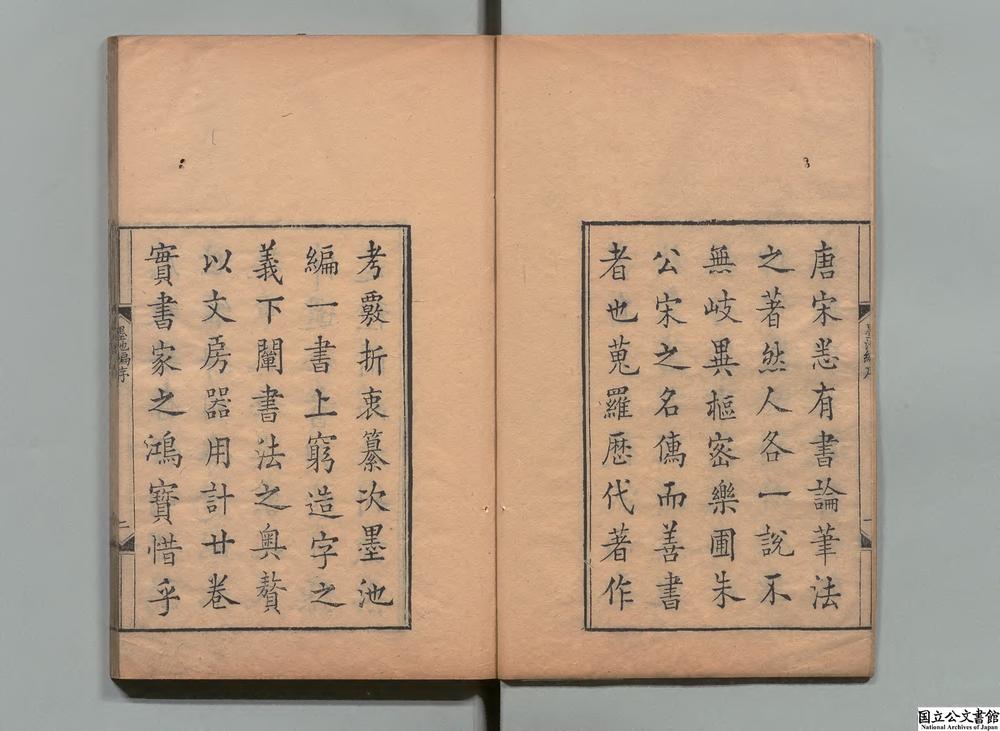 唐宋悉有書論筆法
之著然人各一說不
無岐異樞密樂圃朱
公宋之名儁而善書
者也蒐羅歷代著作
考覈折衷纂次墨池
編一書上窮造字之
義下闡書法之奧贅
以文房器用計廿卷
實書家之鴻寶惜乎
墨池編序
一
墨池編序
二
国立公文書館
National Archives of Japan